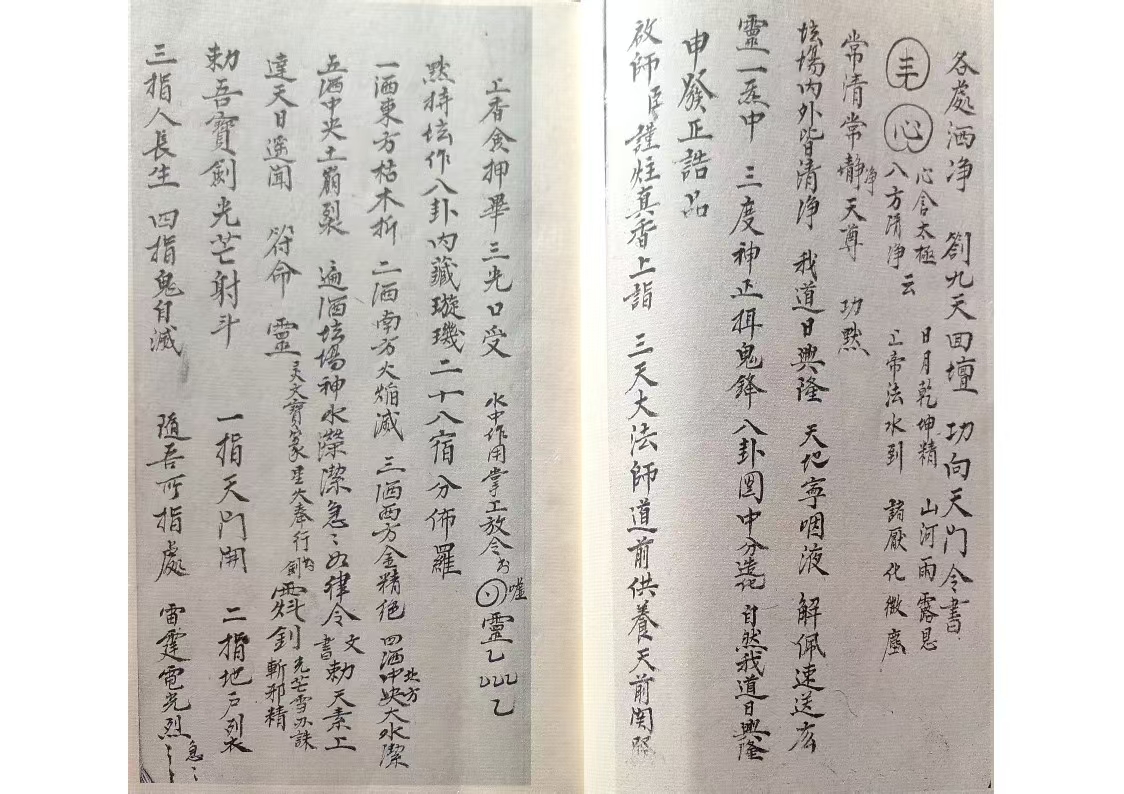 各處洒淨 劄九天回壇 功向天門令書
丰 心 心含太極 八方清净 云 日月乾坤精 上帝法水到 山河雨露恩 諸厭化微塵
常清常静净天尊 功黙
坛場内外皆清净 我道日興隆 天地寧咽液 解佩速送広
靈一炁中 三度神正揖鬼鋒 八卦圖中分造化 自然我道日興隆
申發正誥品
啟師 臣謹炷真香上詣 三天大法師道前供養天前関
上香食押畢三光口受 水中作用掌工放令 靈乙 乙
黙持坛作八卦内藏璇璣二十八宿分佈羅
一洒東方枯木折 二洒南方火焰滅 三洒西方金精绝 四洒中央北方大水潔
五洒中央土崩裂 遍洒坛場神水濴潔急〻如律令 文書 勅天素工
達天日遥聞 符命 靈 天文寶篆 奉行 釗 光芒雪 誅斬邪精
勅吾寶劍光芒射斗 一指天門開 二指地户列
三指人長生 四指鬼自滅 隨吾所指處 雷霆電光烈〻 急〻